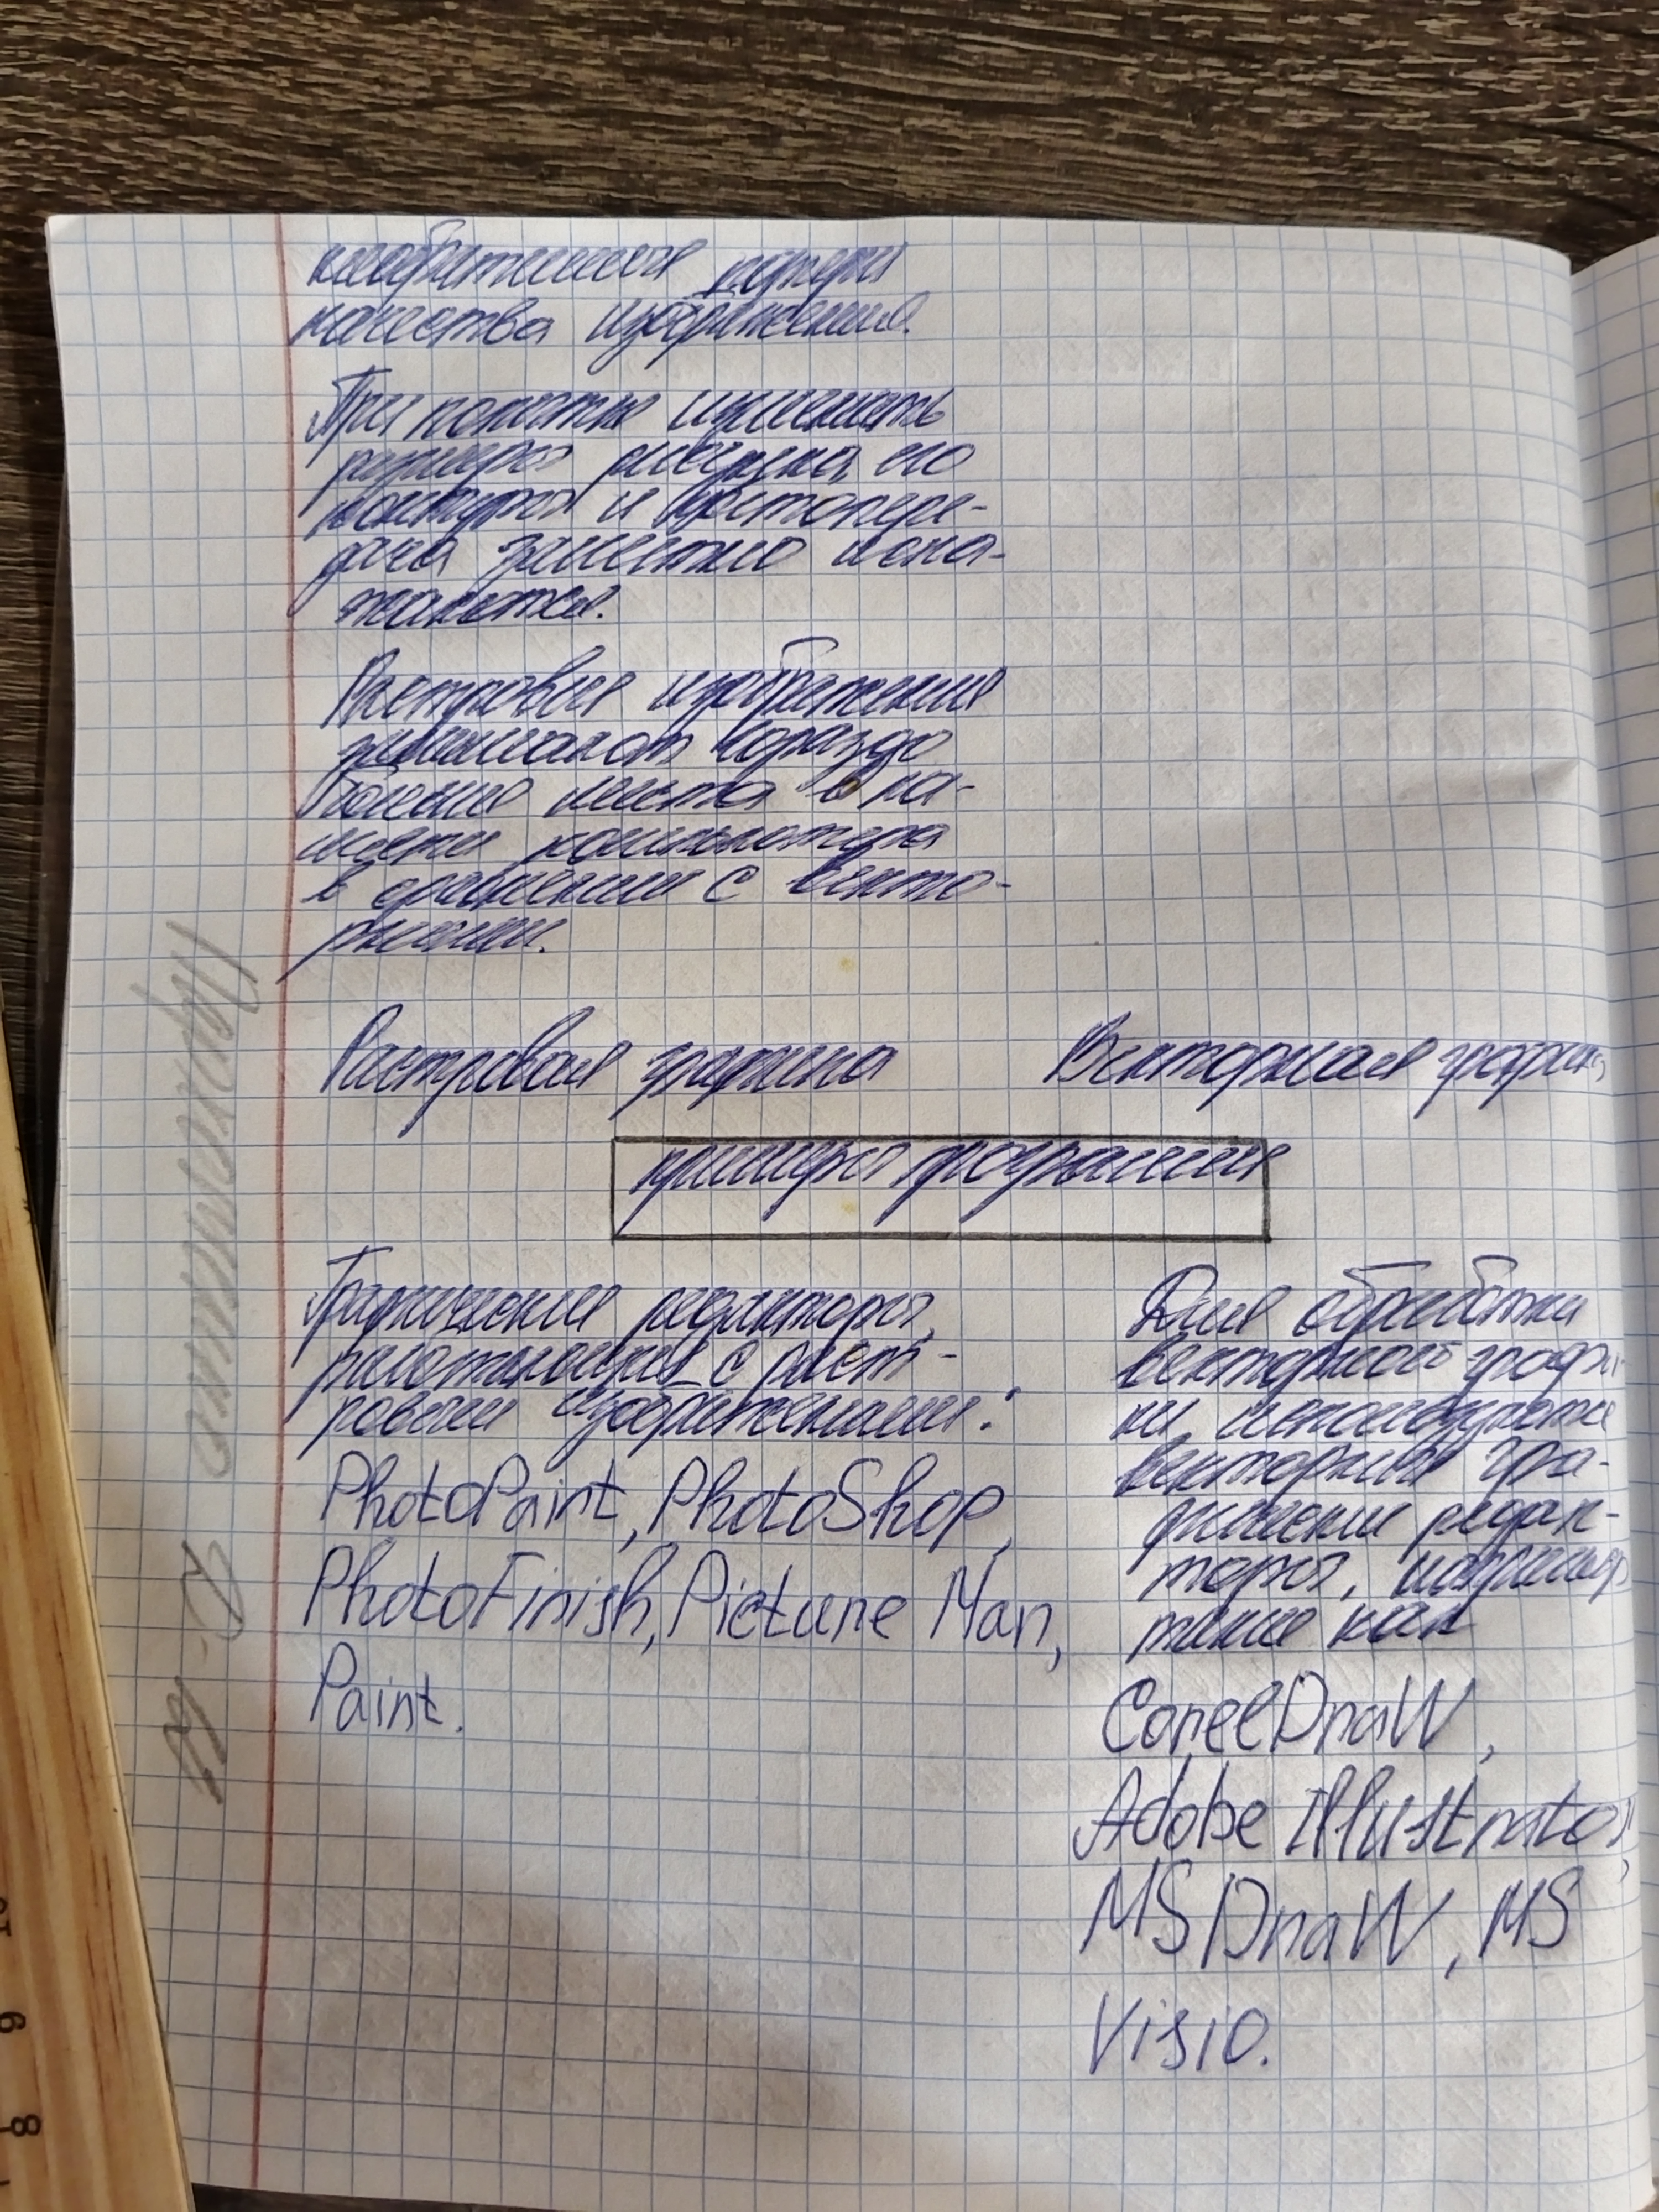 необратимая потеря
качества изображения.
При попытке изменить
размеров рисунка, его
контуров и цветопере-
дача заметно иска-
жается.
Растровые изображения
занимают гораздо
больше места в па-
мяти компьютера
в сравнении с векто-
рными.
Растровая графика
Векторная графика
примеры программ
Графические редакторы,
работающие с раст-
ровыми изображениями:
PhotoPaint, PhotoShop,
PhotoFinish, Picture Man,
Paint.
Для обработки
векторной графи-
ки используются
векторные гра-
фические редак-
торы, например
такие как
CorelDraW,
Adobe Illustrator,
MS DraW, MS
Visio.
9
8